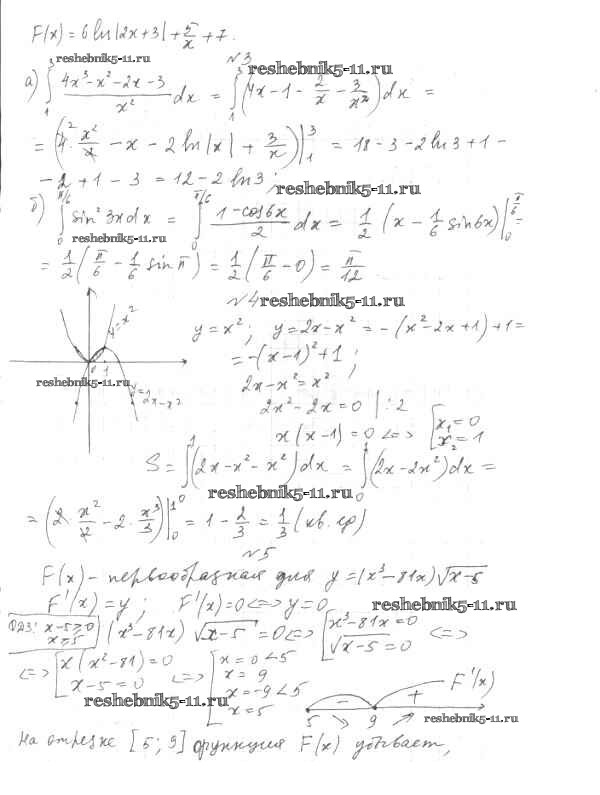 F(x) = 6 ln|2x+3| + 5/x + 7.
reshebnik5-11.ru
№3 reshebnik5-11.ru
а) ∫₁³ (4x³-x²-2x-3)/x² dx = ∫₁³ (4x - 1 - 2/x - 3/x²) dx =
= (4·x²/2 - x - 2 ln|x| + 3/x)|₁³ = 18 - 3 - 2 ln 3 + 1 -
- 2 + 1 - 3 = 12 - 2 ln 3;
reshebnik5-11.ru
б) ∫₀^(π/6) sin² 3x dx = ∫₀^(π/6) (1-cos 6x)/2 dx = 1/2 (x - 1/6 sin 6x)|₀^(π/6) =
reshebnik5-11.ru
= 1/2 (π/6 - 1/6 sin π) = 1/2 (π/6 - 0) = π/12
№4 reshebnik5-11.ru
y = x²
y = x²; y = 2x - x² = -(x² - 2x + 1) + 1 =
= -(x-1)² + 1;
0 1
reshebnik5-11.ru
2x - x² = x²
y = 2x - x²
2x² - 2x = 0 |:2
x(x-1) = 0 <=> [x₁ = 0
x₂ = 1
S = ∫₀¹ (2x - x² - x²) dx = ∫₀¹ (2x - 2x²) dx =
reshebnik5-11.ru
= (2·x²/2 - 2·x³/3)|₀¹ = 1 - 2/3 = 1/3 (кв. ср)
№5
F(x) - первообразная для y = (x³ - 81x)√x-5
F'(x) = y; F'(x) = 0 <=> y = 0
reshebnik5-11.ru
ОДЗ: x-5≥0
x≥5
(x³ - 81x)√x-5 = 0 <=> [x³ - 81x = 0
√x-5 = 0 <=>
<=> [x(x² - 81) = 0
x - 5 = 0 <=> [x = 0 < 5
x = 9
x = -9 < 5
x = 5
reshebnik5-11.ru
- + F'(x)
5 9
reshebnik5-11.ru
На отрезке [5; 9] функция F(x) убывает,